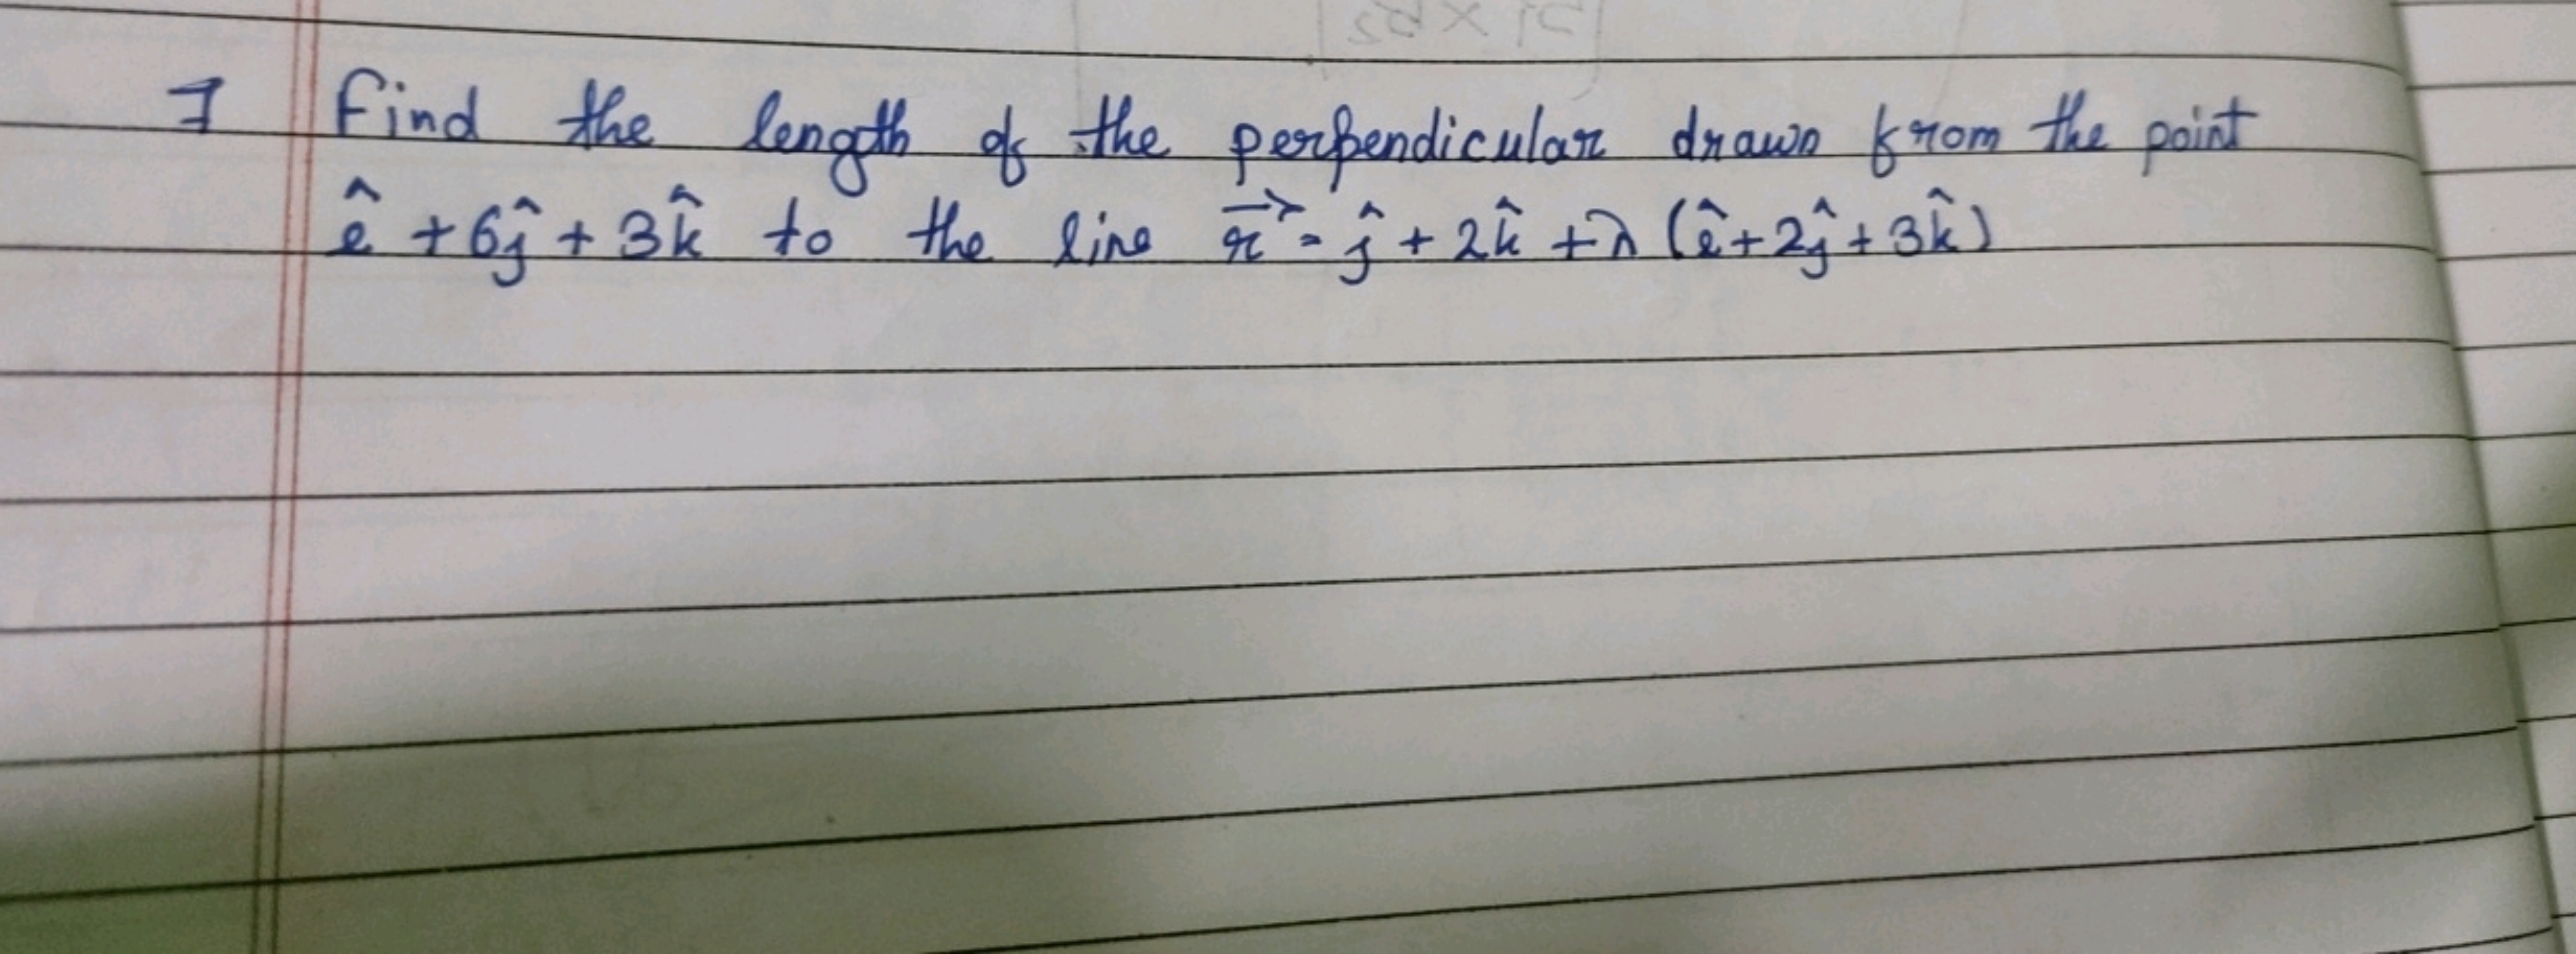 7 Find the length of the perpendicular drawn from the point
î + 6ĵ + 3k̂ to the line r⃗ = ĵ + 2k̂ + λ (î + 2ĵ + 3k̂)